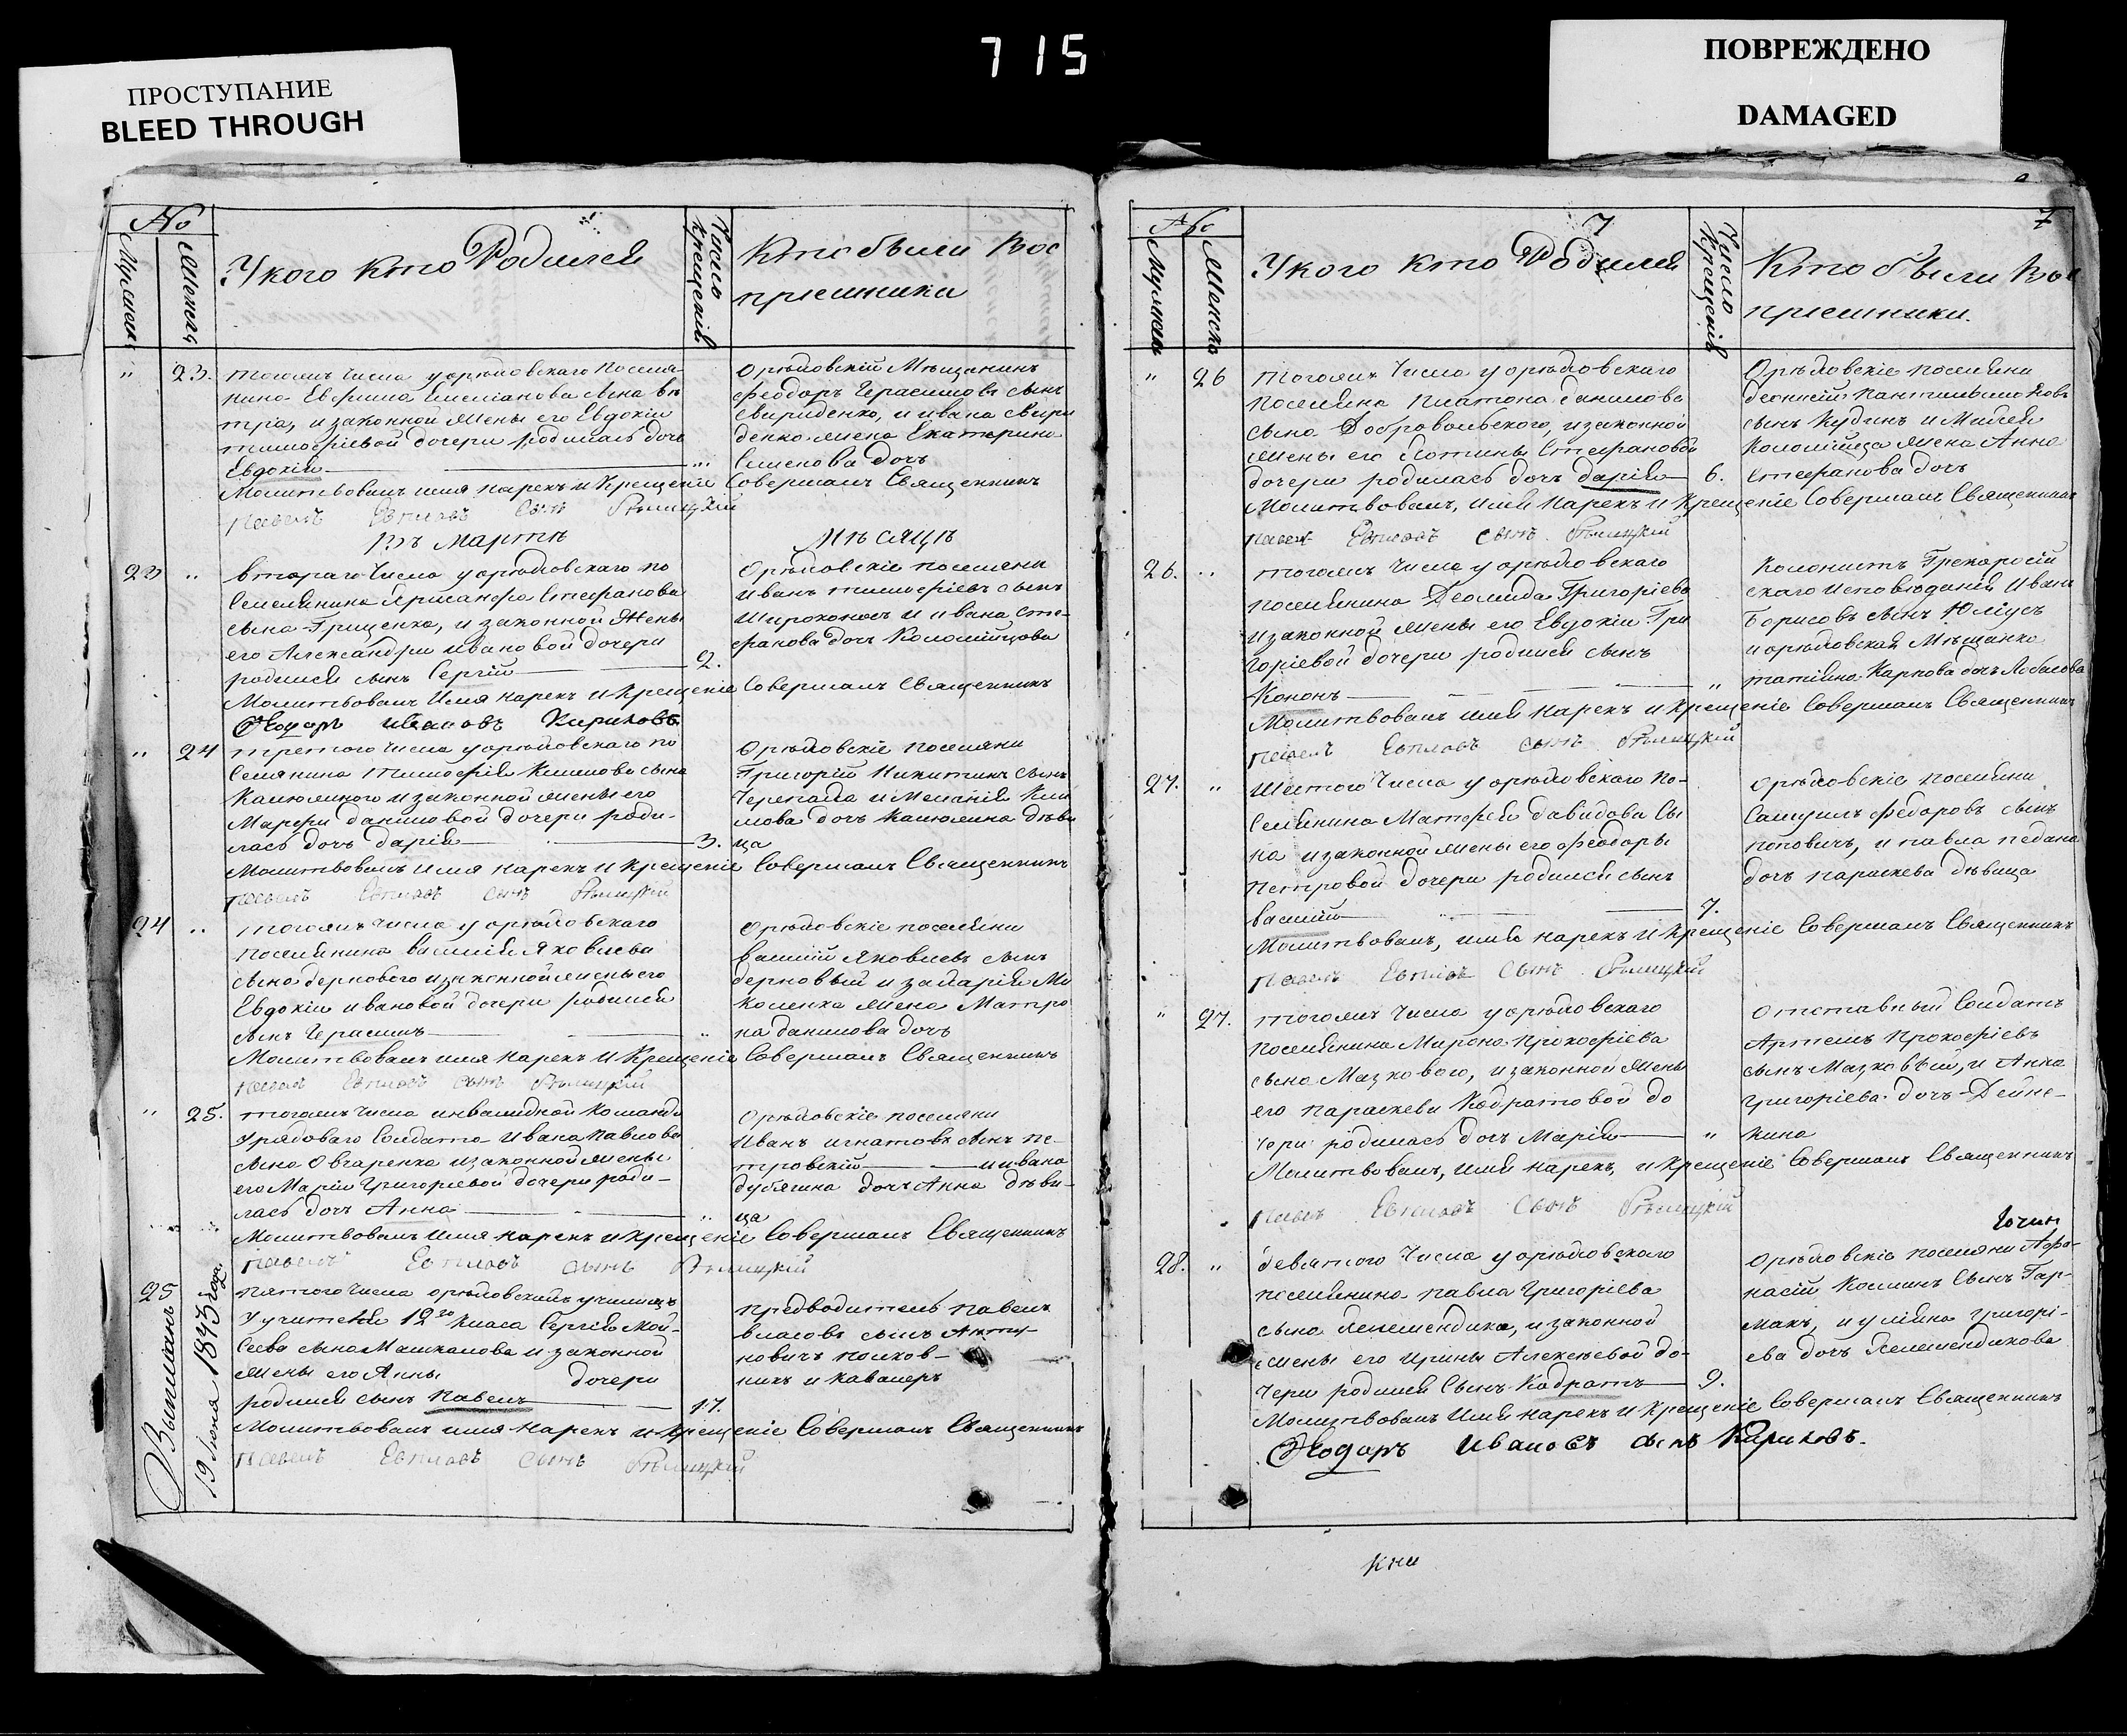 715
ПРОСТУПАНИЕ
BLEED THROUGH
ПОВРЕЖДЕНО
DAMAGED
№
Мужеска
Женска
У кого кто Родился
Число крещенія
Кто были Вос
пріемники
23.
тогожъ числа у орѣховскаго поселя-
нина Евфима Емеліанова сына
и законной жены его Евдокіи
тимофіевой дочери родилась дочь
Евдокія
Молитвовалъ имя нарекъ и крещеніе совершалъ Священникъ
павелъ Евплов сынъ
Орѣховскій Мѣщанинъ
феодоръ Герасимовъ сынъ
Свириденко, и ивана свири
денко жена Екатерина
Семенова дочь
Въ Мартѣ Мѣсяцѣ
23
втораго числа у орѣховскаго по
селянина Стефанова
сына Гриценка, и законной жены
его Александры ивановой дочери
родился сынъ Сергій
2.
Молитвовалъ имя нарекъ и крещеніе совершалъ Священникъ
Феодоръ ивановъ Кириловъ
Орѣховскіе поселяни
иванъ тимофіевъ сынъ
Широконосъ и ивана сте-
фанова дочь Коломійцова
24
третого числа у орѣховскаго по
селянина тимофія Климова сына
Калюжного и законной жены его
Марфы даниловой дочери роди-
лась дочь дарія
3.
Молитвовалъ имя нарекъ и крещеніе совершалъ Священникъ
павелъ Евплов сынъ
Орѣховскіе поселяни
Григорій Никитинъ сынъ
Черепаха и Меланія Кли
мова дочь Калюжна дѣви
ца
24
тогожъ числа у орѣховскаго
поселянина василія Яковлева
сына дернового и законной жены его
Евдокіи ивановой дочери родился
сынъ Герасимъ
Молитвовалъ имя нарекъ и крещеніе совершалъ Священникъ
павелъ Евплов сынъ
орѣховскіе поселяни
василій Яковлевъ сынъ
дерновый и захарія Ми
коленка жена Матро
на данилова дочь
25.
тогожъ числа инвалидной команды
У рядоваго солдата Ивана павлова
сына Овчаренка и законной жены
его Маріи Григоріевой дочери роди-
лась дочь Анна
Молитвовалъ имя нарекъ и крещеніе совершалъ Священникъ
павелъ Евплов сынъ
Орѣховскіе поселяни
Иванъ игнатовъ сынъ пе-
тровскій и ивана
дубягина дочь Анна дѣви-
ца
25
Выписанъ
19 июня 1843 года.
пятого числа орѣховскихъ училищъ
У учителя 12го класа Сергія Мой-
сеева сына Машкалова и законной
жены его Анны дочери
родился сынъ Павелъ
17.
Молитвовалъ имя нарекъ и крещеніе совершалъ Священникъ
павелъ Евплов сынъ
предводитель павелъ
власовъ сынъ Анту-
новичъ полков-
никъ и кавалеръ
7
7
№
Мужеска
Женска
У кого кто Родился
Число Крещенія
Кто были Вос
пріемники.
26
тогожъ числа у орѣховскаго
поселянина платона данилова
сына Добровольского, и законной
жены его Фотины Стефановой
дочери родилась дочь дарія
6.
Молитвовалъ, имя нарекъ и крещеніе совершалъ Священникъ
павелъ Евплов сынъ
Орѣховскіе поселяни
сынъ Кудинъ и
Коломійца жена Анна
Стефанова дочь
26.
тогожъ числа у орѣховскаго
поселянина Деомида Григоріева
и законной жены его Евдокіи Гри
горіевой дочери родился сынъ
Кононъ
Молитвовалъ имя нарекъ и крещеніе совершалъ Священникъ
павелъ Евплов сынъ
Колонистъ Грекоросій
скаго исповѣданія иванъ
Борисовъ сынъ Юліусъ
и орѣховская Мѣщанка
татіяна Карпова дочь Лобасова
27.
Шестого числа у орѣховскаго по-
селянина Матфея давидова сы
на и законной жены его феодоры
петровой дочери родился сынъ
василій
7.
Молитвовалъ, имя нарекъ и крещеніе совершалъ Священникъ
павелъ Евплов сынъ
Орѣховскіе поселяни
Самуилъ федоровъ сынъ
поповичъ, и павла педана
дочь параскева дѣвица
27.
тогожъ числа у орѣховскаго
поселянина Мирона прокофіева
сына Мазкового, и законной жены
его параскевы Кодратовой до
чери родилась дочь Марія
Молитвовалъ, имя нарекъ, и крещеніе совершалъ Священникъ
павелъ Евплов сынъ
Отставный солдатъ
Артемъ прокофіевъ
сынъ Мазковый, и Анна
Григоріева дочь Дейне-
кина
28.
девятого числа у орѣховскаго
поселянина павла Григоріева
сына и законной
жены его ирины Алексѣевой до-
чери родился сынъ Кодратъ
9.
Молитвовалъ имя нарекъ и крещеніе совершалъ Священникъ
Феодоръ ивановъ сынъ Кириловъ.
Орѣховскіе поселяни Афа-
насій Козминъ сынъ Гар-
махъ, и уліяна Григорі-
ева дочь
кни